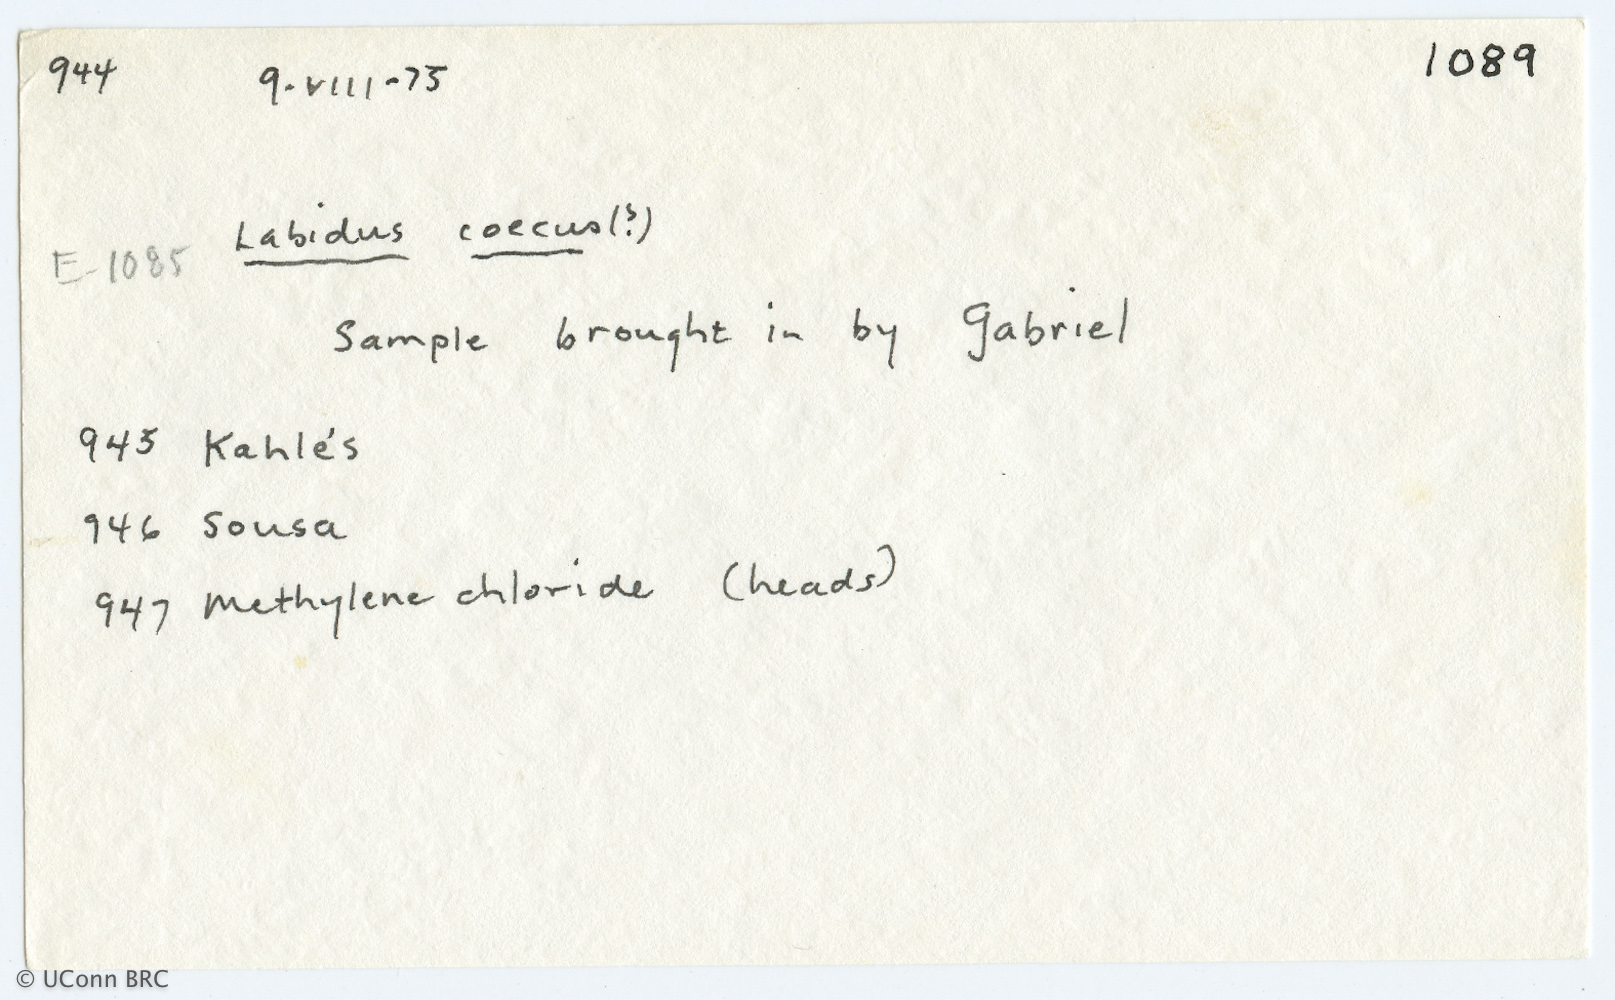 944 9-VIII-75 1089
Labidus coecus(?)
E-1085
Sample brought in by Gabriel
945 Kahle's
946 Sousa
947 Methylene chloride (heads)
© UConn BRC